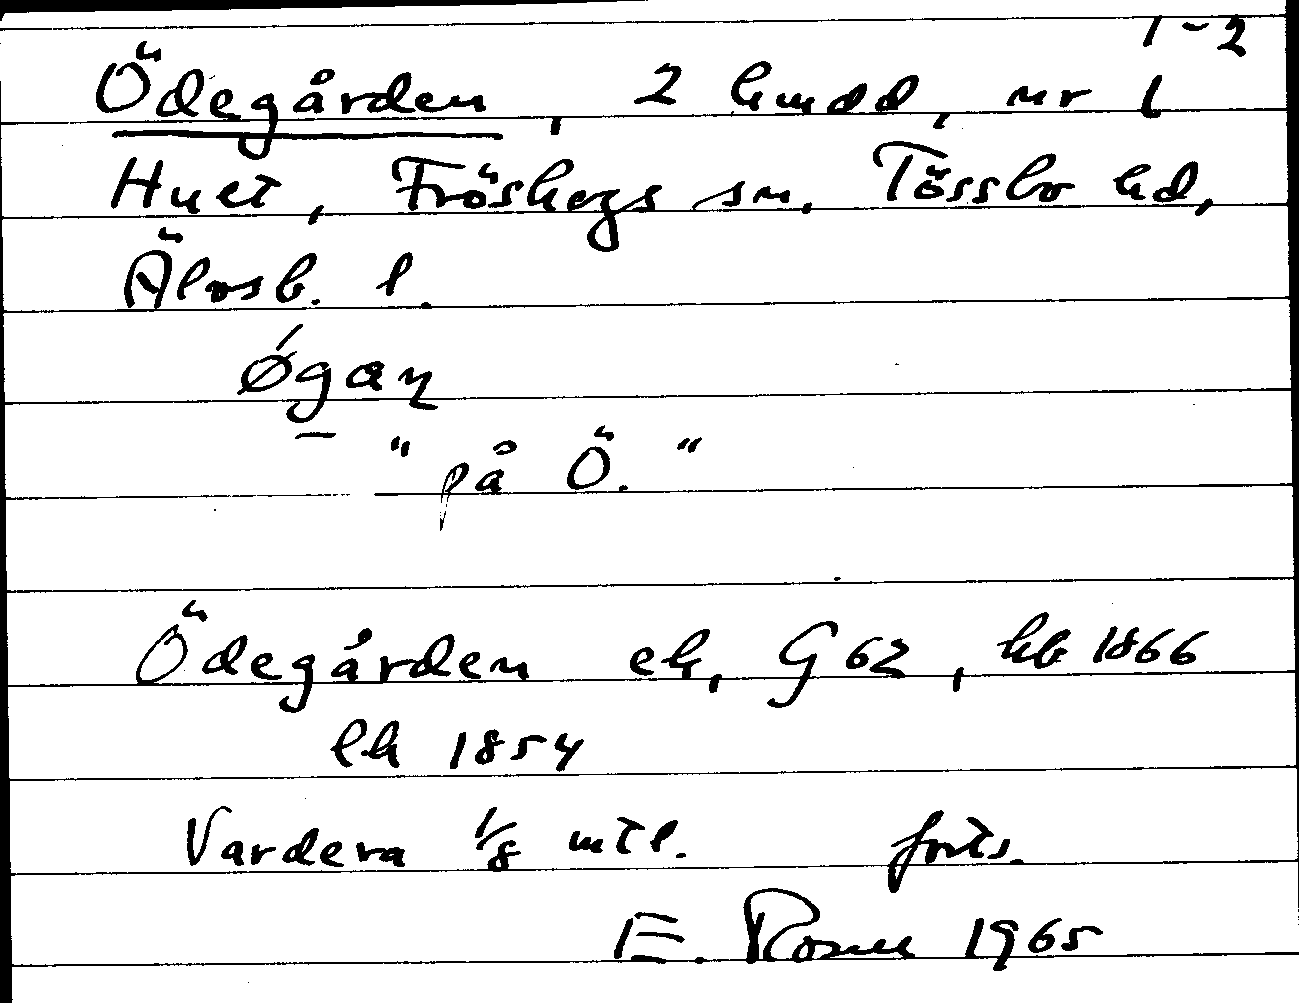 1-2
Ödegården, 2 hmdd, nr 1
Huet, Fröskogs sn. Tössbo hd,
Älvsb. l.
ǿgaɳ
"på Ö."
Ödegården ek, G 62, hb 1866
lh 1854
Vardera 1/8 mtl. forts.
E. Rosell 1965